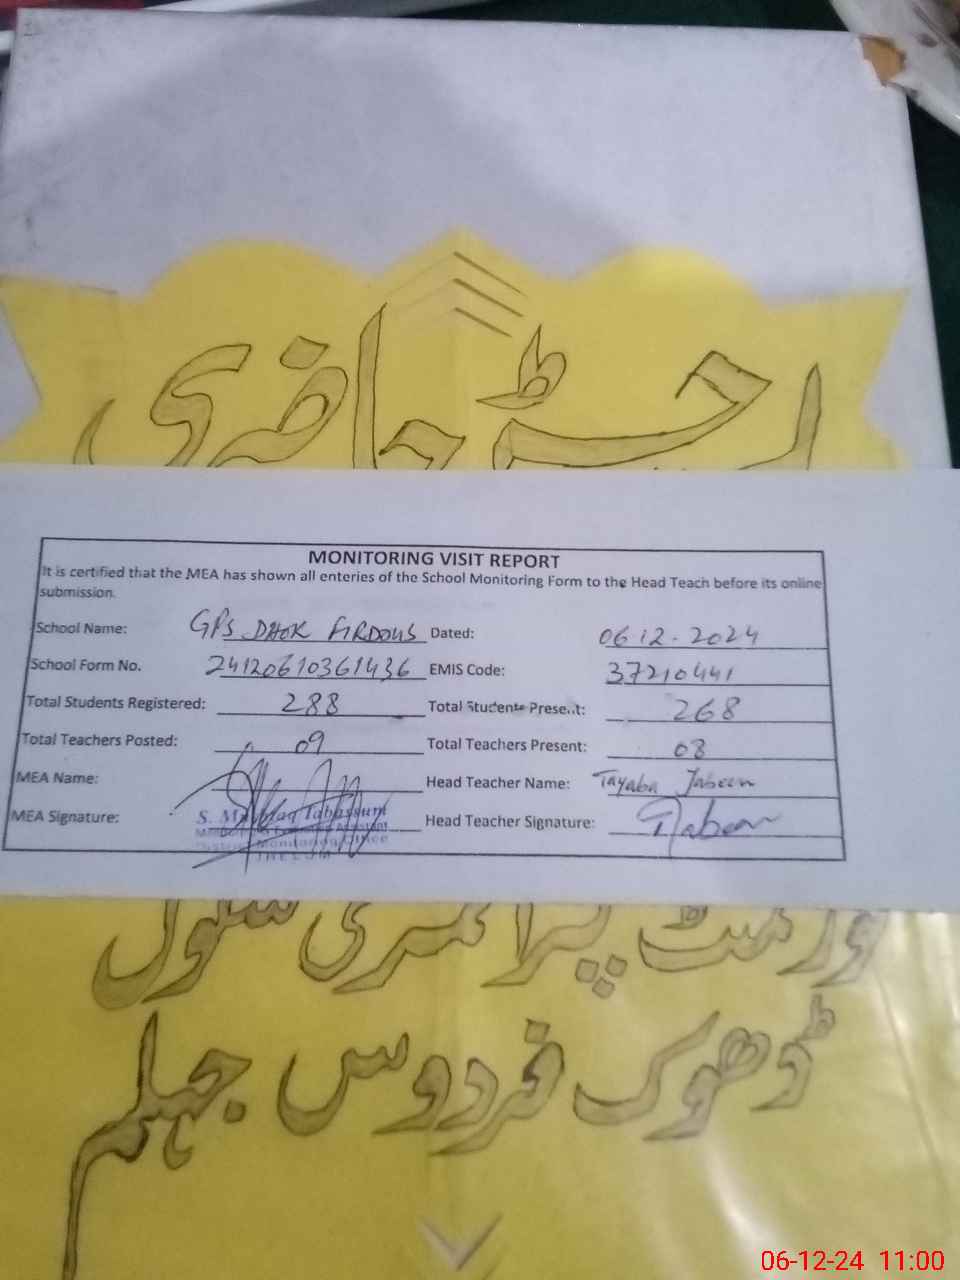 رجسٹر حاضری
MONITORING VISIT REPORT
It is certified that the MEA has shown all enteries of the School Monitoring Form to the Head Teach before its online
submission.
School Name: GPS DHOK FIRDOUS Dated: 06 12 . 2024
School Form No. 24120610361436 EMIS Code: 37210441
Total Students Registered: 288 Total Students Present: 268
Total Teachers Posted: 09 Total Teachers Present: 08
MEA Name: Head Teacher Name: Tayaba Jabeen
MEA Signature: S. Tabassum Head Teacher Signature: Jabeen
Monitoring Office
JHELUM
پرائمری سکول
ڈھوک فردوس جہلم
06-12-24 11:00